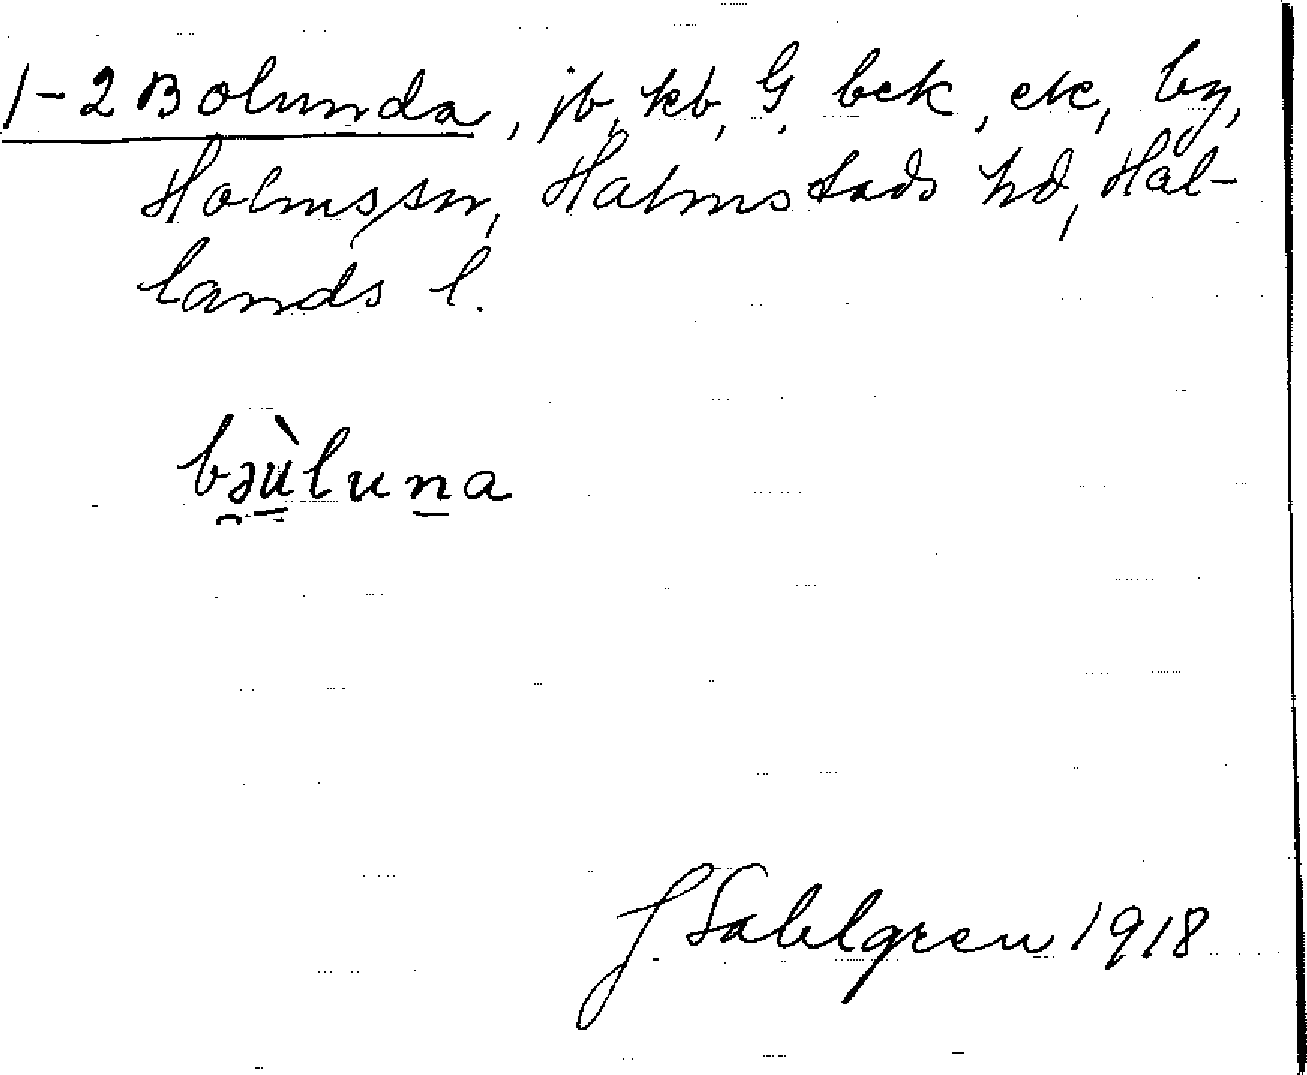 1-2 Bolunda, jb, kb, G, bek, ek, by,
Holms sn, Halmstads hd, Hal-
lands l.
bəùluna
J. Sahlgren 1918